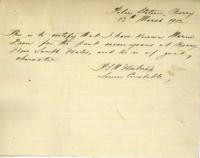 Police Station, Berry
13th March 1912
This is to certify that I have known
for the past seven years at Berry
New South Wales, and he is of good
character
Senior Constable